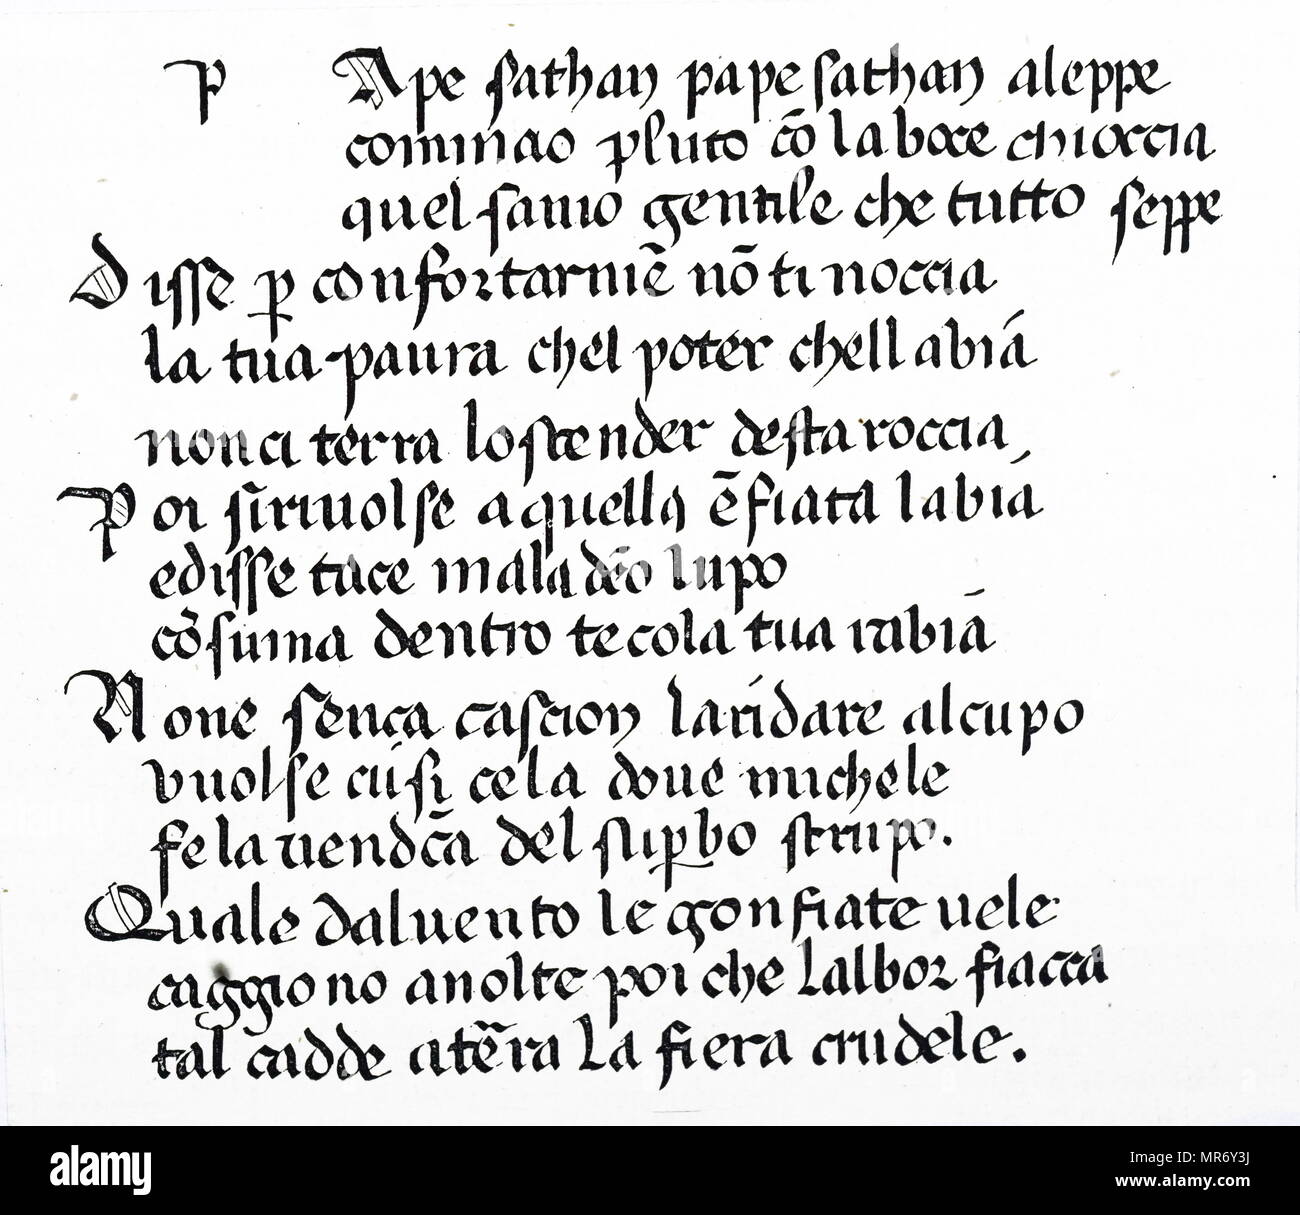 P Ape sathan pape sathan aleppe
cominao pluto cō la boce chioccia
quel sauio gentile che tutto seppe
Disse p confortarme nō ti noccia
la tua paura chel poter chell abiā
non ci terra lo scender desta roccia
Poi si riuolse a quella ēfiata labiā
e disse tace maladeo lupo
cōsuma dentro te cola tua rabiā
Non e sença cascion landare al cupo
vuolse cusi ne la doue michele
fe la uendca del supbo strupo.
Quale dal uento le gonfiate uele
caggiono a uolte poi che lalbor fiacca
tal cadde a tera la fiera crudele.
alamy
Image ID: MR6Y3J
www.alamy.com